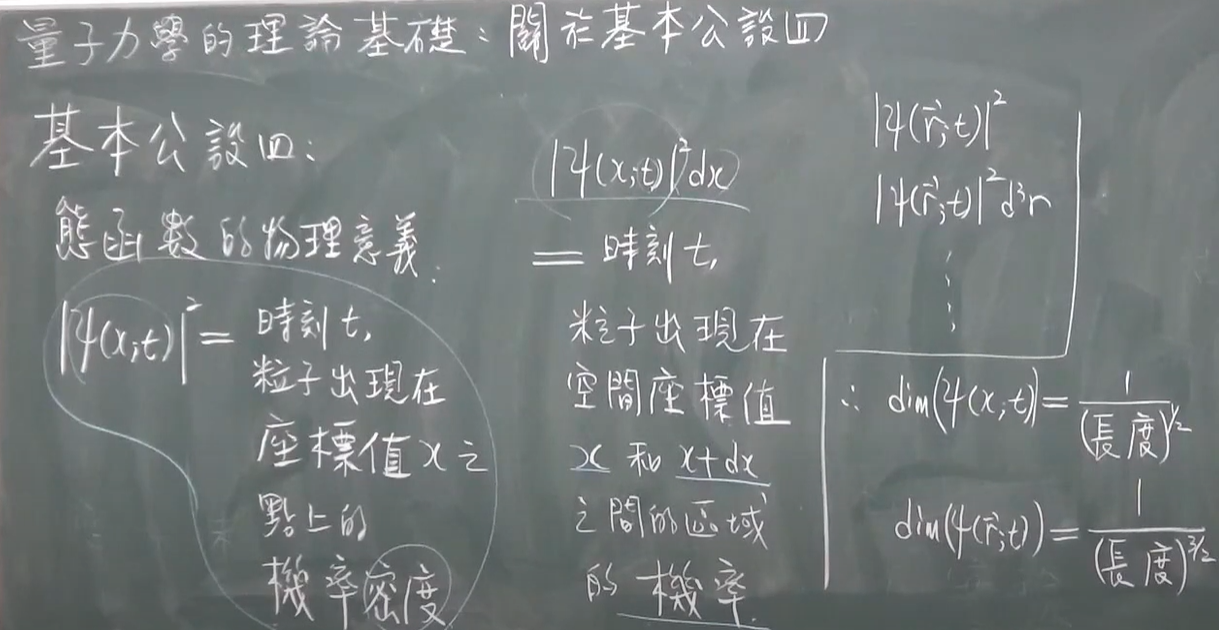 量子力學的理論基礎:關於基本公設四
基本公設四:
態函數的物理意義:
|ψ(x;t)|²= 時刻t,
粒子出現在
座標值x之
點上的
機率密度
|ψ(x;t)|²dx
= 時刻t,
粒子出現在
空間座標值
x 和 x+dx
之間的區域
的 機率.
|ψ(r⃗;t)|²
|ψ(r⃗;t)|²d³r
⋮
∴ dim(ψ(x;t))= 1/(長度)^1/2
dim(ψ(r⃗;t))= 1/(長度)^3/2